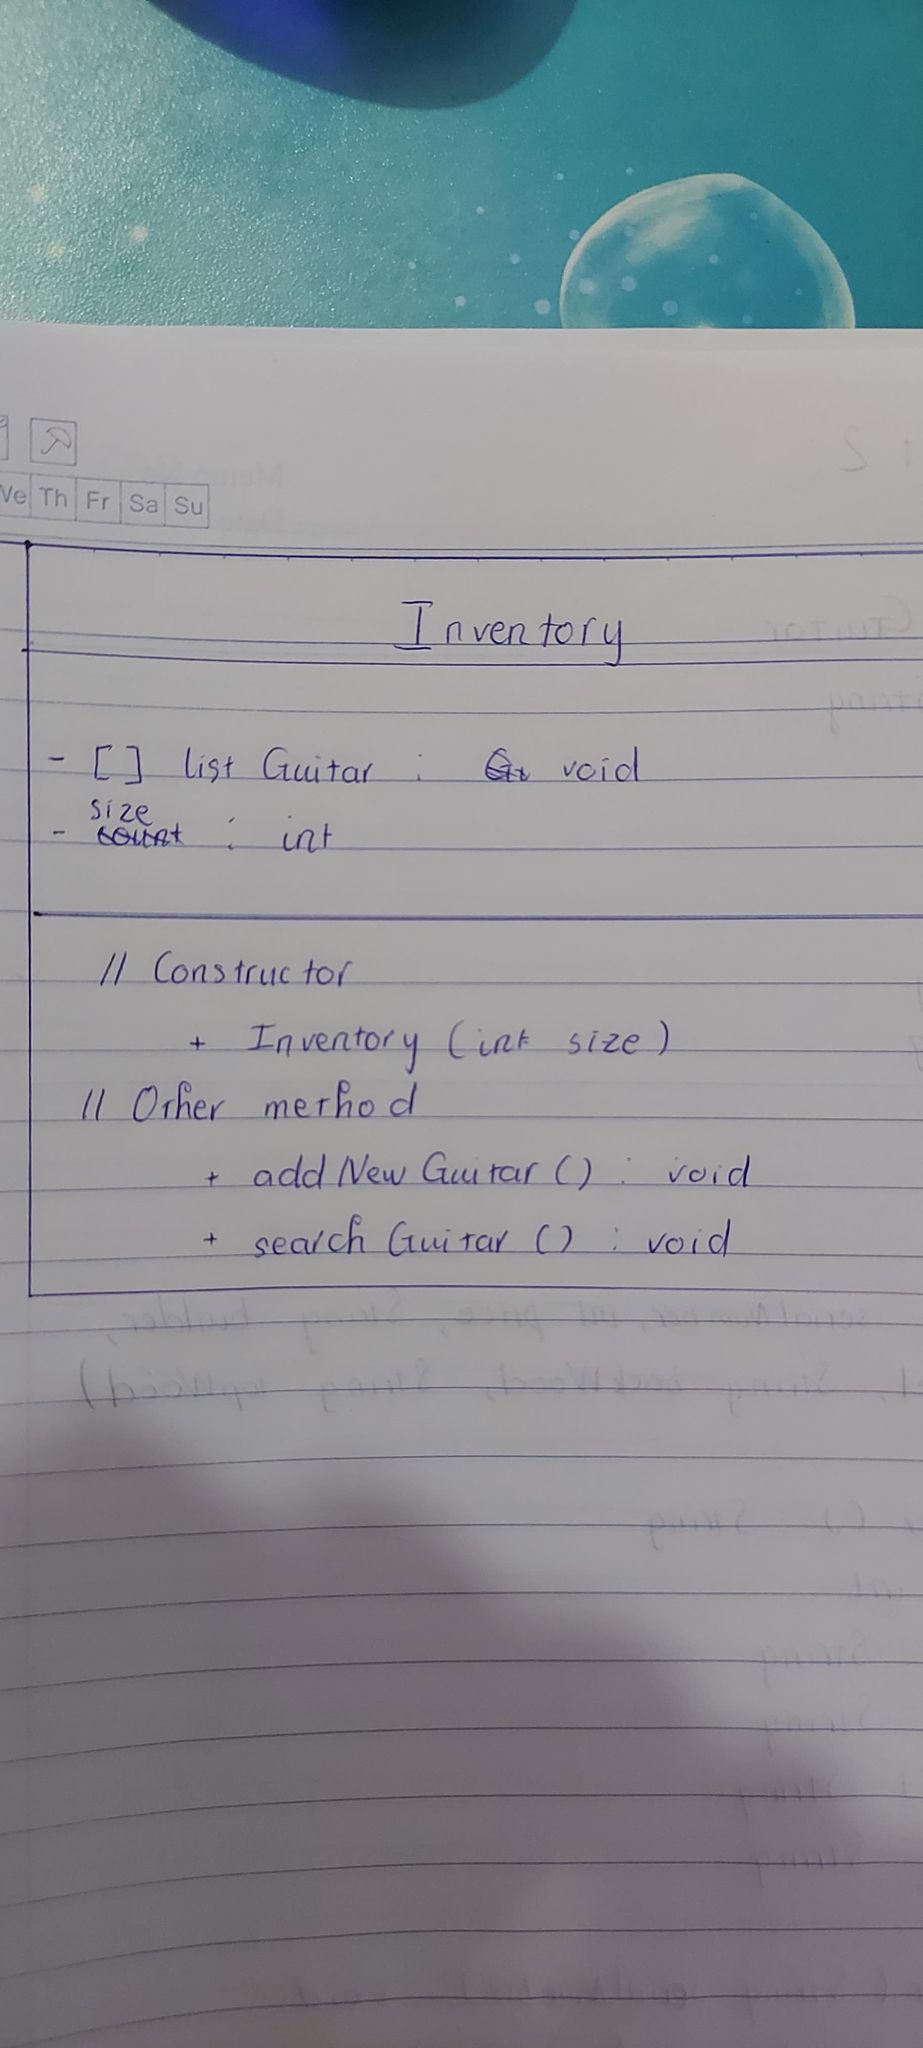 We Th Fr Sa Su
Inventory
- [ ] list Guitar : void
size
- count : int
// Constructor
+ Inventory (int size)
// Other method
+ addNewGuitar () : void
+ searchGuitar () : void